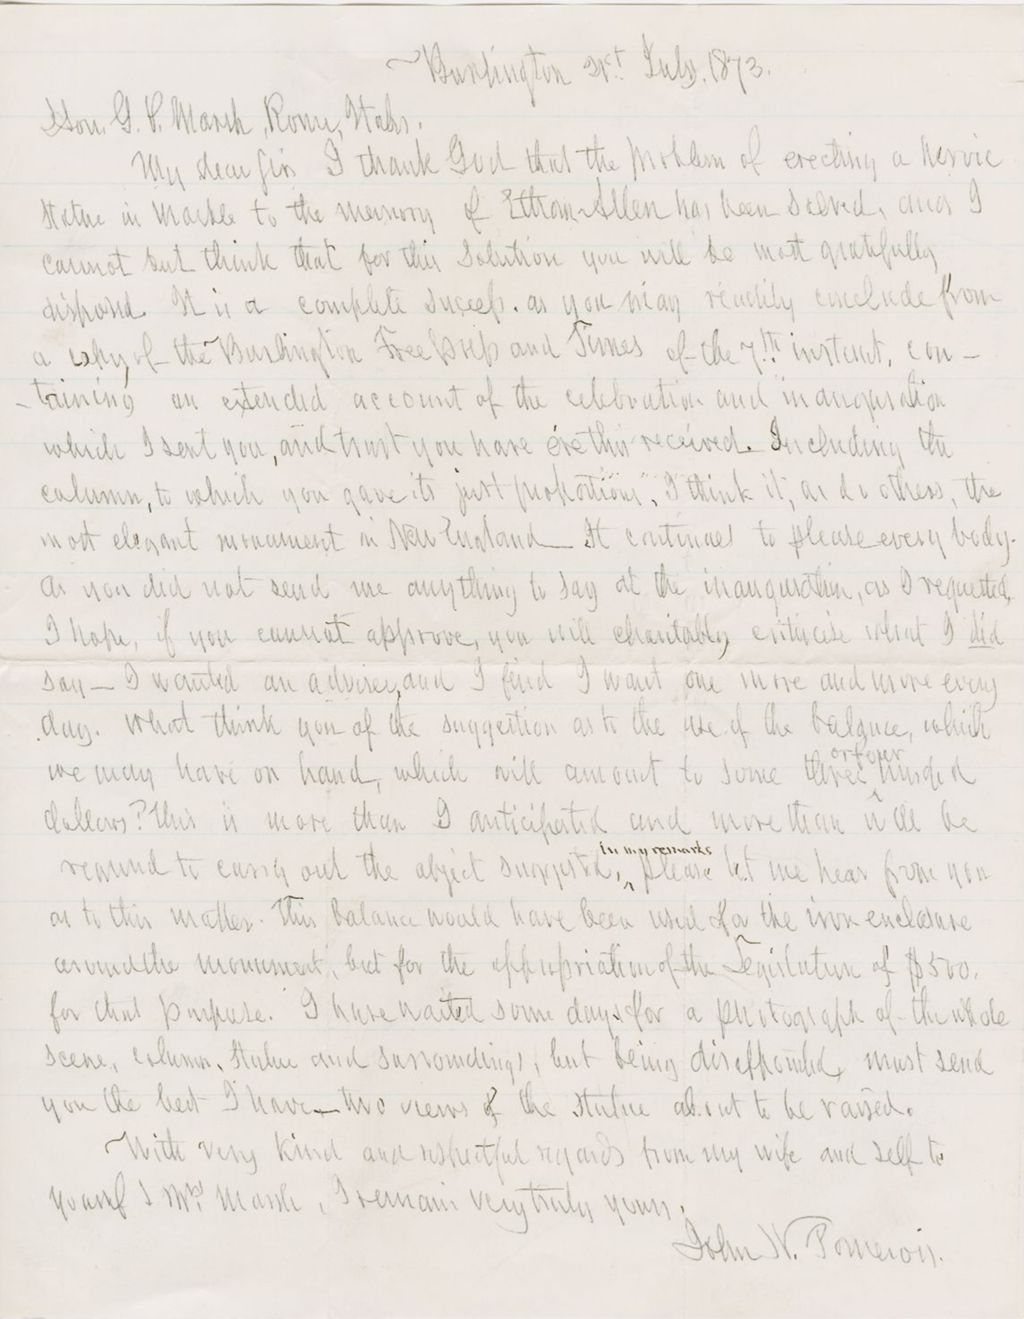 Burlington 21st July, 1873.
Hon. G. P. Marsh, Rome, Italy.
My dear Sir, I thank God that the problem of erecting a heroic
statue in marble to the memory of Ethan Allen has been solved, and I
cannot but think that for this solution you will be most gratefully
disposed. It is a complete success, as you may readily conclude from
a copy of the Burlington Free Press and Times of the 7th instant, con-
taining an extended account of the celebration and inauguration
which I sent you, and trust you have ere this received. Including the
column, to which you gave its "just proportions", I think it, as do others, the
most elegant monument in New England — It continues to please every body.
As you did not send me anything to say at the inauguration, as I requested,
I hope, if you cannot approve, you will charitably criticise what I did
say — I wanted an adviser, and I find I want one more and more every
day. What think you of the suggestion as to the use of the balance, which
we may have on hand, which will amount to some three or four hundred
dollars? This is more than I anticipated and more than will be
required to carry out the object suggested, in my remarks please let me hear from you
as to this matter. This balance would have been used for the iron enclosure
around the monument, but for the appropriation of the Legislature of $500.
for that purpose. I have waited some days for a photograph of the whole
scene, column, statue and surroundings, but being disappointed, must send
you the best I have — two views of the statue about to be raised.
With very kind and respectful regards from my wife and self to
yourself & Mrs Marsh, I remain very truly yours,
John N. Pomeroy.